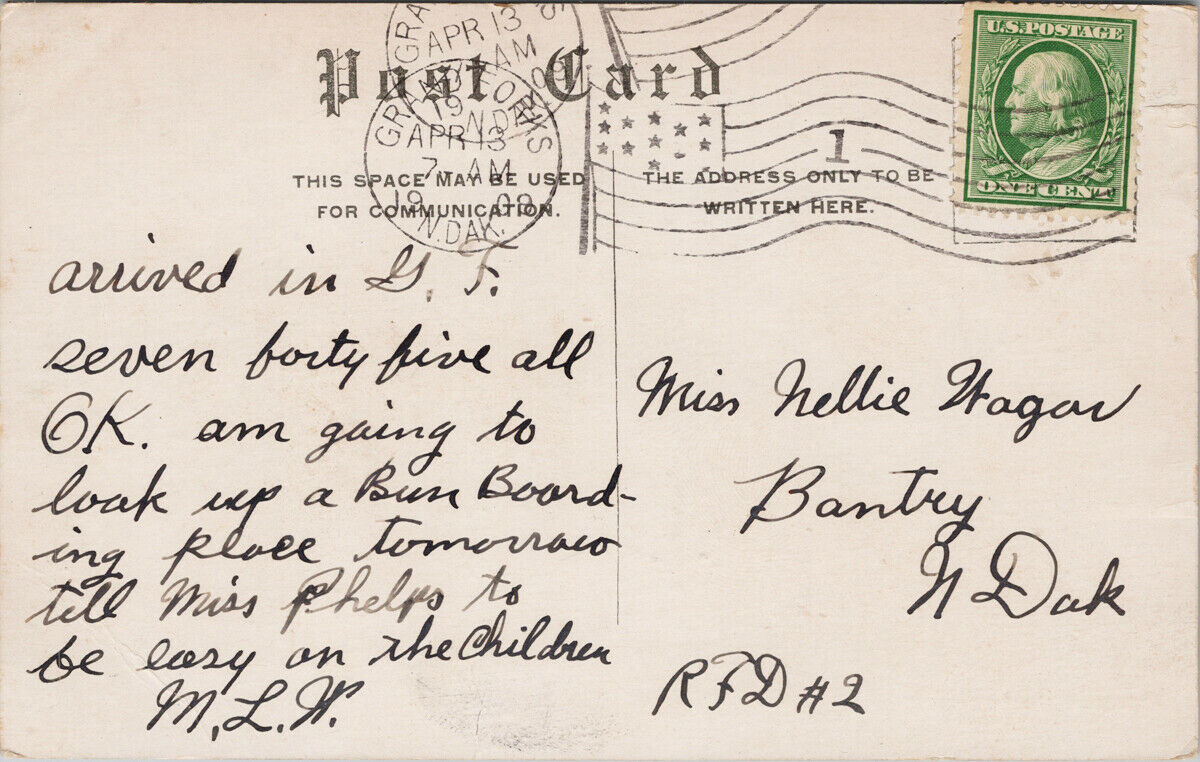 Post Card
THIS SPACE MAY BE USED
FOR COMMUNICATION.
THE ADDRESS ONLY TO BE
WRITTEN HERE.
U.S. POSTAGE
ONE CENT
1
APR 13
AM
N.DAK.
GRAND FORKS
APR 13
7- AM
19 09
N.DAK.
arrived in G. F.
seven forty five all
OK. am going to
look up a Bun Board-
ing place tomorrow
tell Miss Phelps to
be easy on the Children
M. L. W.
Miss Nellie Wagar
Bantry
N Dak
RFD #2